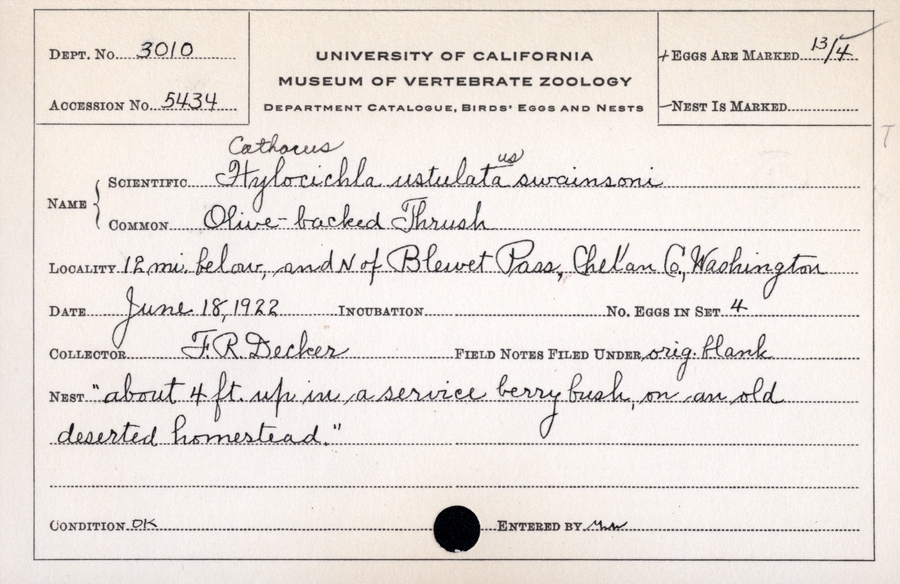 DEPT. NO. 3010
ACCESSION NO. 5434
UNIVERSITY OF CALIFORNIA
MUSEUM OF VERTEBRATE ZOOLOGY
DEPARTMENT CATALOGUE, BIRDS' EGGS AND NESTS
+ EGGS ARE MARKED 13/4
– NEST IS MARKED
T
Catharus
us
NAME { SCIENTIFIC Hylocichla ustulata swainsoni
COMMON Olive-backed Thrush
LOCALITY 12 mi. below, and N of Blewet Pass, Chelan C., Washington
DATE June 18, 1922 INCUBATION NO. EGGS IN SET 4
COLLECTOR F. R. Decker FIELD NOTES FILED UNDER orig. blank
NEST "about 4 ft. up in a service berry bush, on an old
deserted homestead."
CONDITION OK ENTERED BY